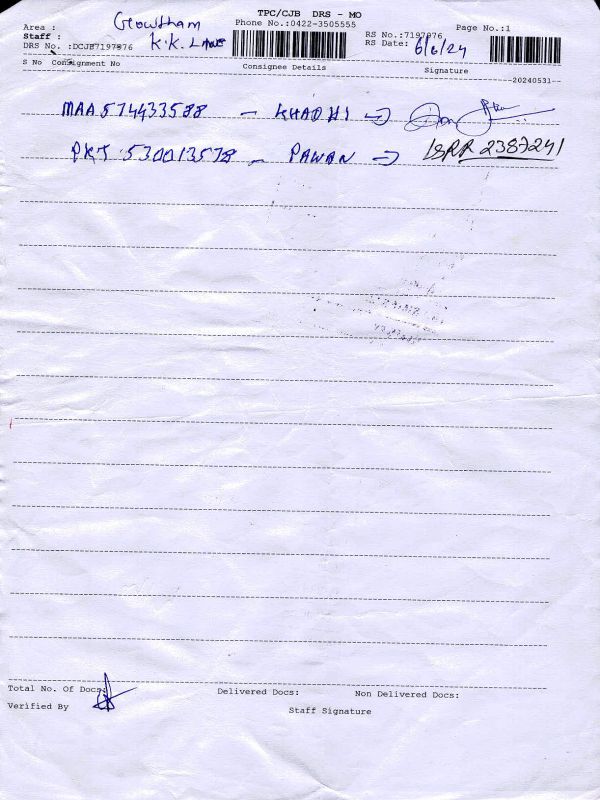 TPC/CJB DRS - MO
Area : Gowtham Phone No.:0422-3505555 RS No.:7197976 Page No.:1
Staff : K.K. Lane RS Date: 6/6/24
DRS No. :DCJB7197976
S No Consignment No Consignee Details Signature
20240531
MAA 574433588 - KHADHI →
PKT 530013578 - PAWAN → 2387241
Total No. Of Docs: Delivered Docs: Non Delivered Docs:
Verified By Staff Signature